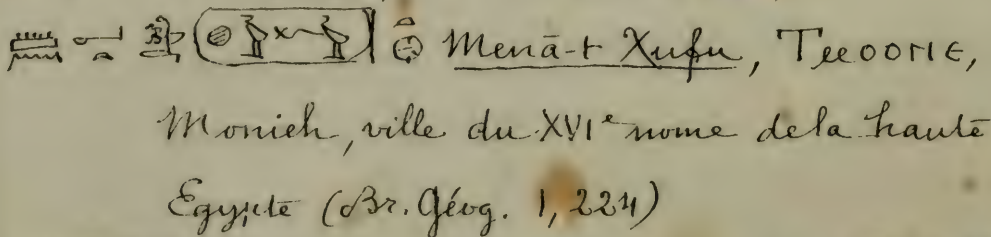 𓏠𓈖𓂝𓏏 (𓐍𓅱𓆑𓅱) 𓏏𓊖 Menā-t Xufu, Ⲧⲙⲟⲟⲛⲉ,
Monieh, ville du XVIᵉ nome de la haute
Egypte (Br. Géog. 1, 224)